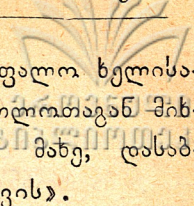 ფალო ხელისა-
ოლოთაგან მიხ-
მახე, დასაბ
ვის».